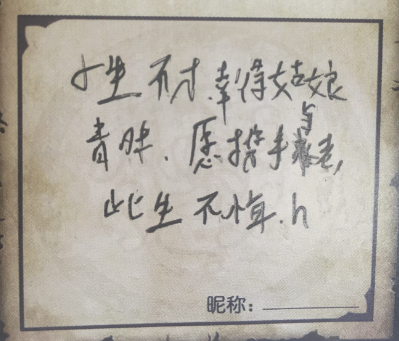 小生不才.幸得姑娘
青睐.愿携手与老,
此生不悔.h
昵称：